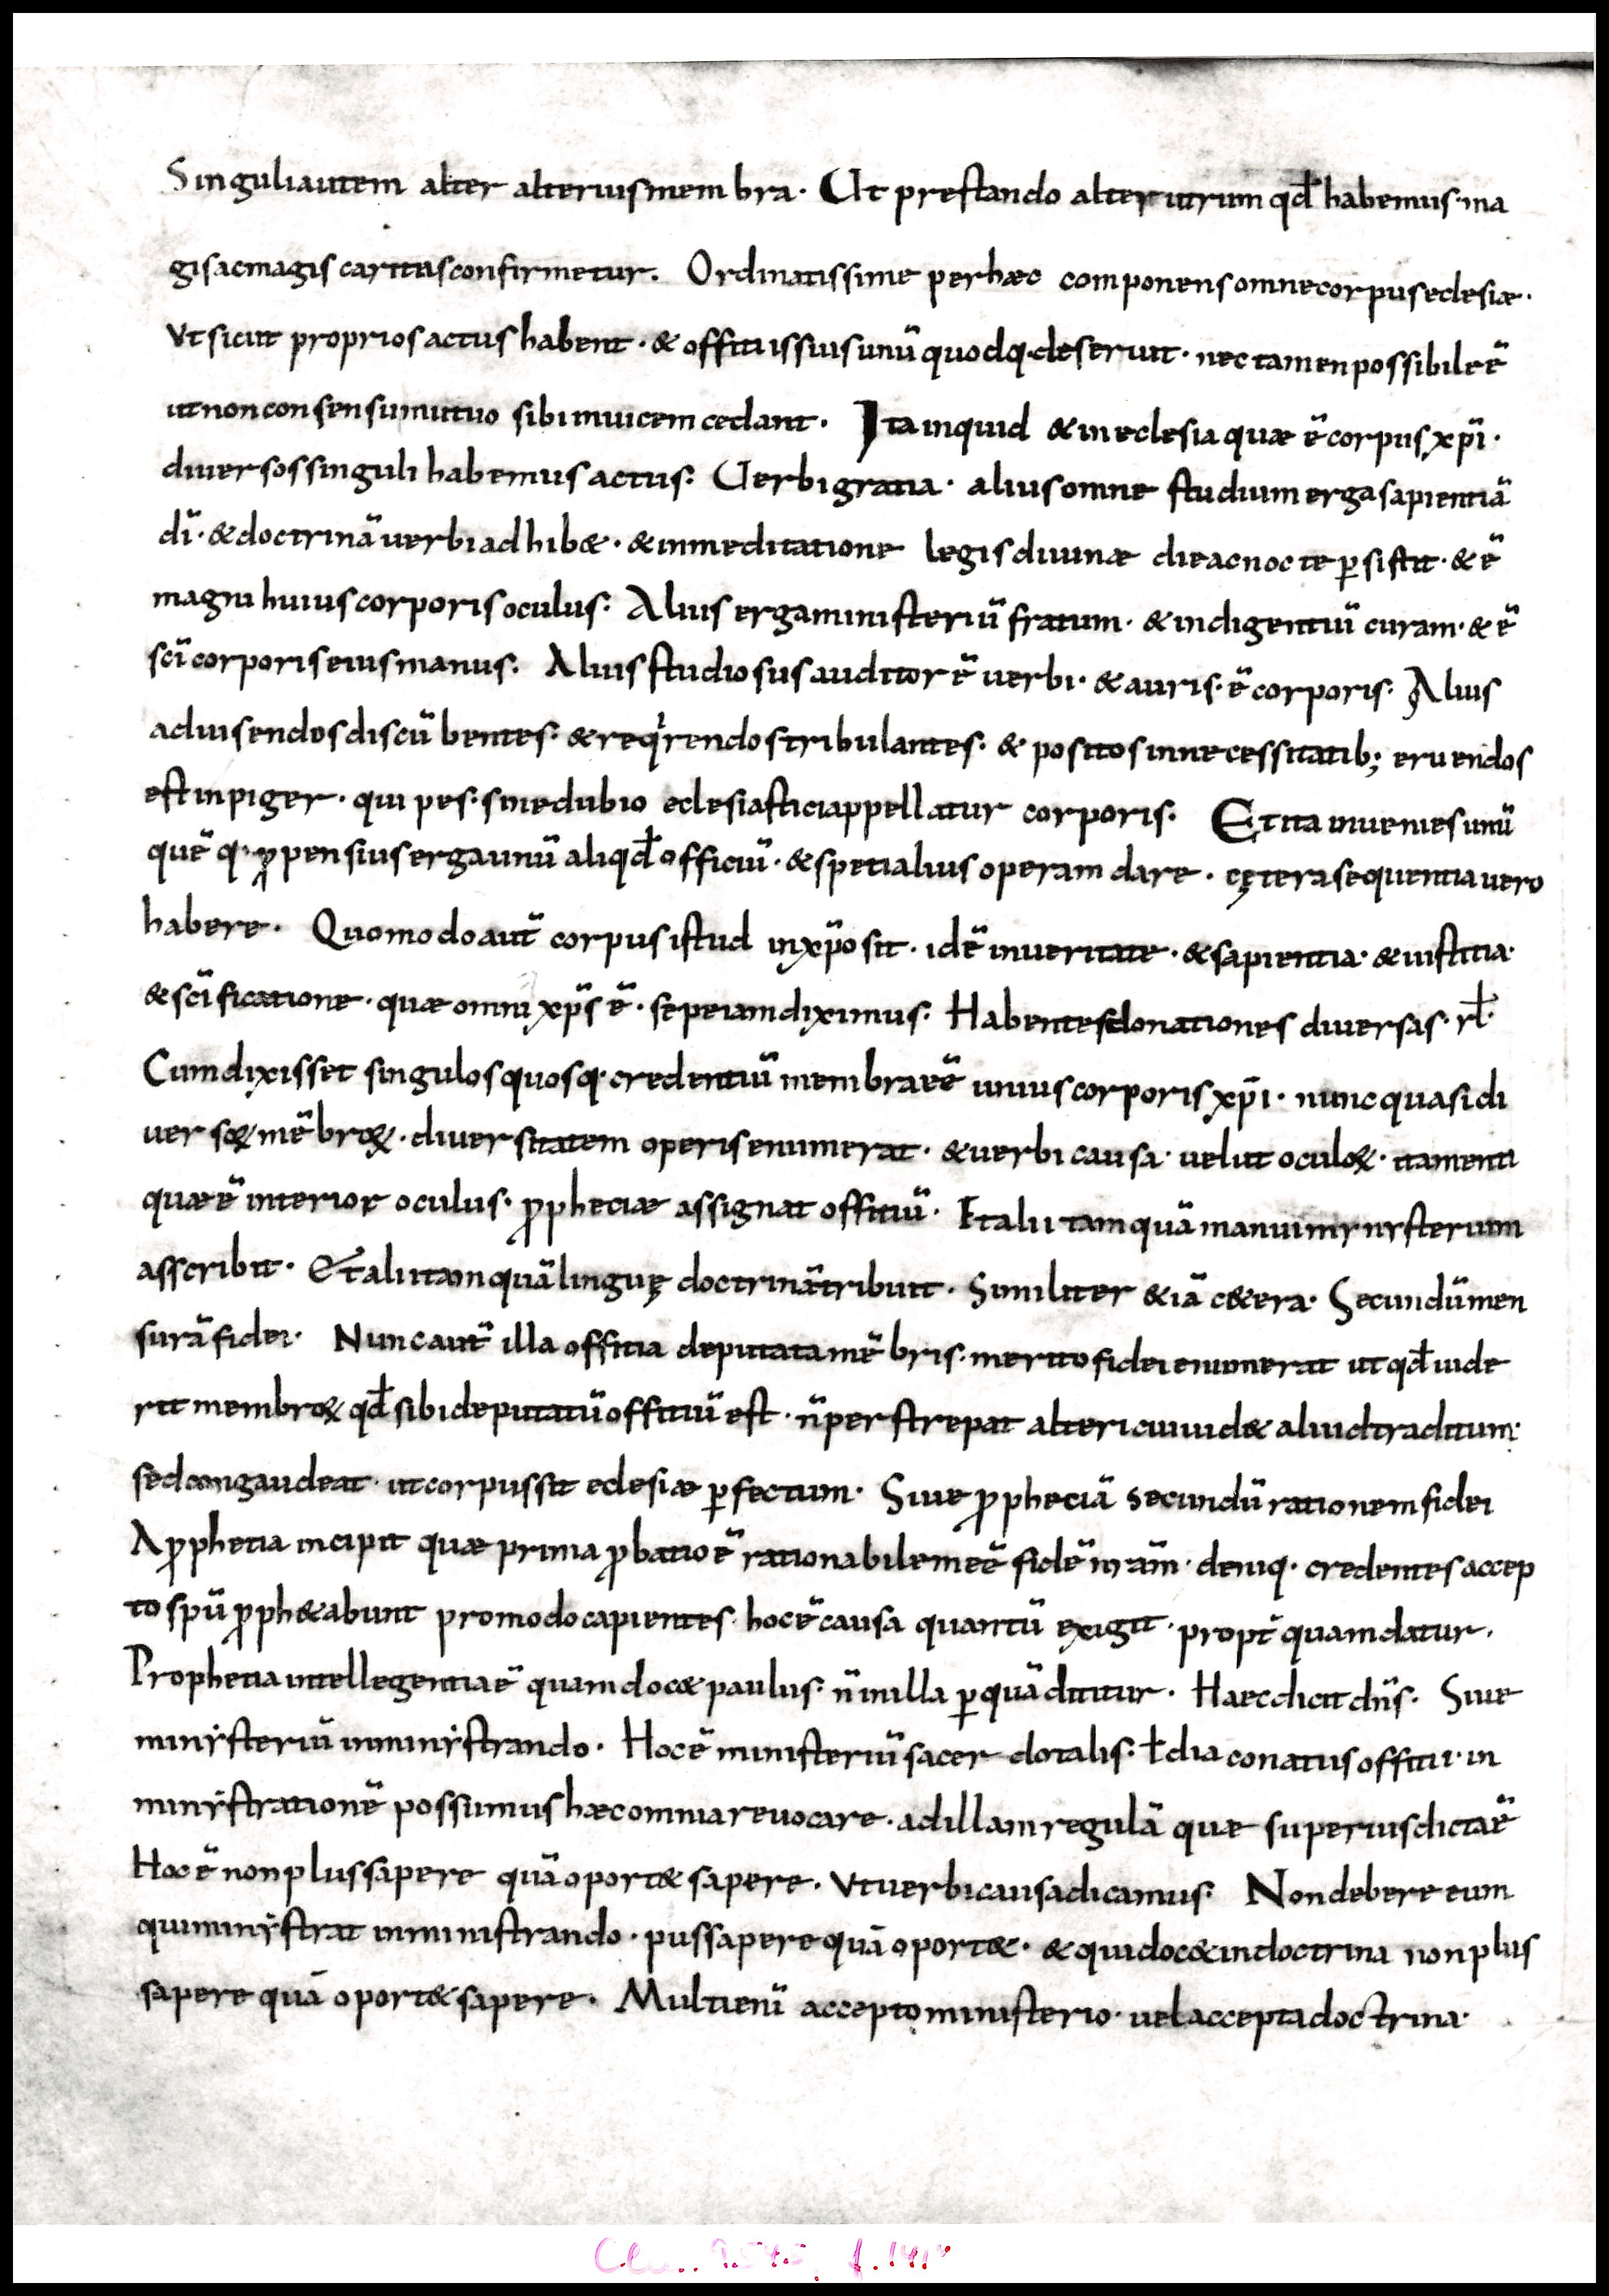 Singuli autem alter alterius membra· Ut prestando alterutrum qđ habemus· ma
gis ac magis caritas confirmetur. Ordinatissime per hæc componens omne corpus eclesiæ·
Vt sicut proprios actus habent· & offitiis suis unū quodq· deseruit· nec tamen possibile ē
ut non consensu mutuo sibi inuicem cedant· Ita inquid & in eclesia quæ ē corpus xp̄i·
diuersos singuli habemus actus: Uerbi gratia· alius omne studium erga sapientiā
dī· & doctrinā uerbi adhib&· & in meditatione legis diuinæ die ac nocte ꝑsistit· & ē
magni huius corporis oculus: Alius erga ministeriū fratum· & indigentiū curam· & ē
scī corporis eius manus: Alius studiosus auditor ē uerbi· & auris· ē corporis: Alius
ad uisendos discūbentes: & reqirendos tribulantes: & positos in necessitatib; eruendos
est inpiger· qui pes· sine dubio eclesiastici appellatur corporis: Et ita inuenies unū
quē q· ꝓpensius erga unū aliqđ officiū· & spetialius operam dare· cętera sequentia uero
habere· Quomodo aut̄ corpus istud in xp̄o sit· idē in ueritate· & sapientia· & iustitia·
& scīficatione· quæ omni xp̄s ē· sepe iam diximus: Habentes donationes diuersas· rł·
Cum dixisset singulos quosq· credentiū membra eē unius corporis xp̄i· nunc quasi di
uersoꝝ mēbroꝝ· diuersitatem operis enumerat· & uerbi causa· uelut oculoꝝ· ita menti
quæ ē interior oculus· ꝓpheciæ assignat offitiū· Et alii tamquā manui mynysterium
asscribit· Et alii tamquā linguę doctrinā tribuit· Similiter & iā c&era· Secundū men
surā fidei· Nunc aut̄ illa offitia deputata mēbris· merito fidei enumerat ut qđ uide
rit membroꝝ qđ sibi deputatū offitiū est· n̄ perstrepat alteri cui uid& aliud traditum·
sed congaudeat· ut corpus sit eclesiæ ꝑfectum· Siue ꝓpheciā secundū rationem fidei
A ꝓphetia incipit quæ prima ꝓbatio ē rationabilem eē fidē nr̄am· deniq· credentes accep
to spū ꝓph&abunt pro modo capientes· hoc ē causa quantū exigit· propt̄ quam datur.
Prophetia intellegentia ē quam doc& paulus: n̄ in illa ꝑ quā dititur· Haec dicit dn̄s· Siue
mynysteriū in mynystrando· Hoc ē ministeriū sacerdotalis· ł diaconatus offitii· in
mynystrationē possumus hæc omnia reuocare· ad illam regulā quæ superius dicta ē
Hoc ē non plus sapere quā oport& sapere· Vt uerbi causa dicamus: Non debere eum
qui mynystrat in ministrando· pus sapere quā oport&· & qui doc& in doctrina non plus
sapere quā oport& sapere· Multi enī accepto ministerio· uel accepta doctrina·